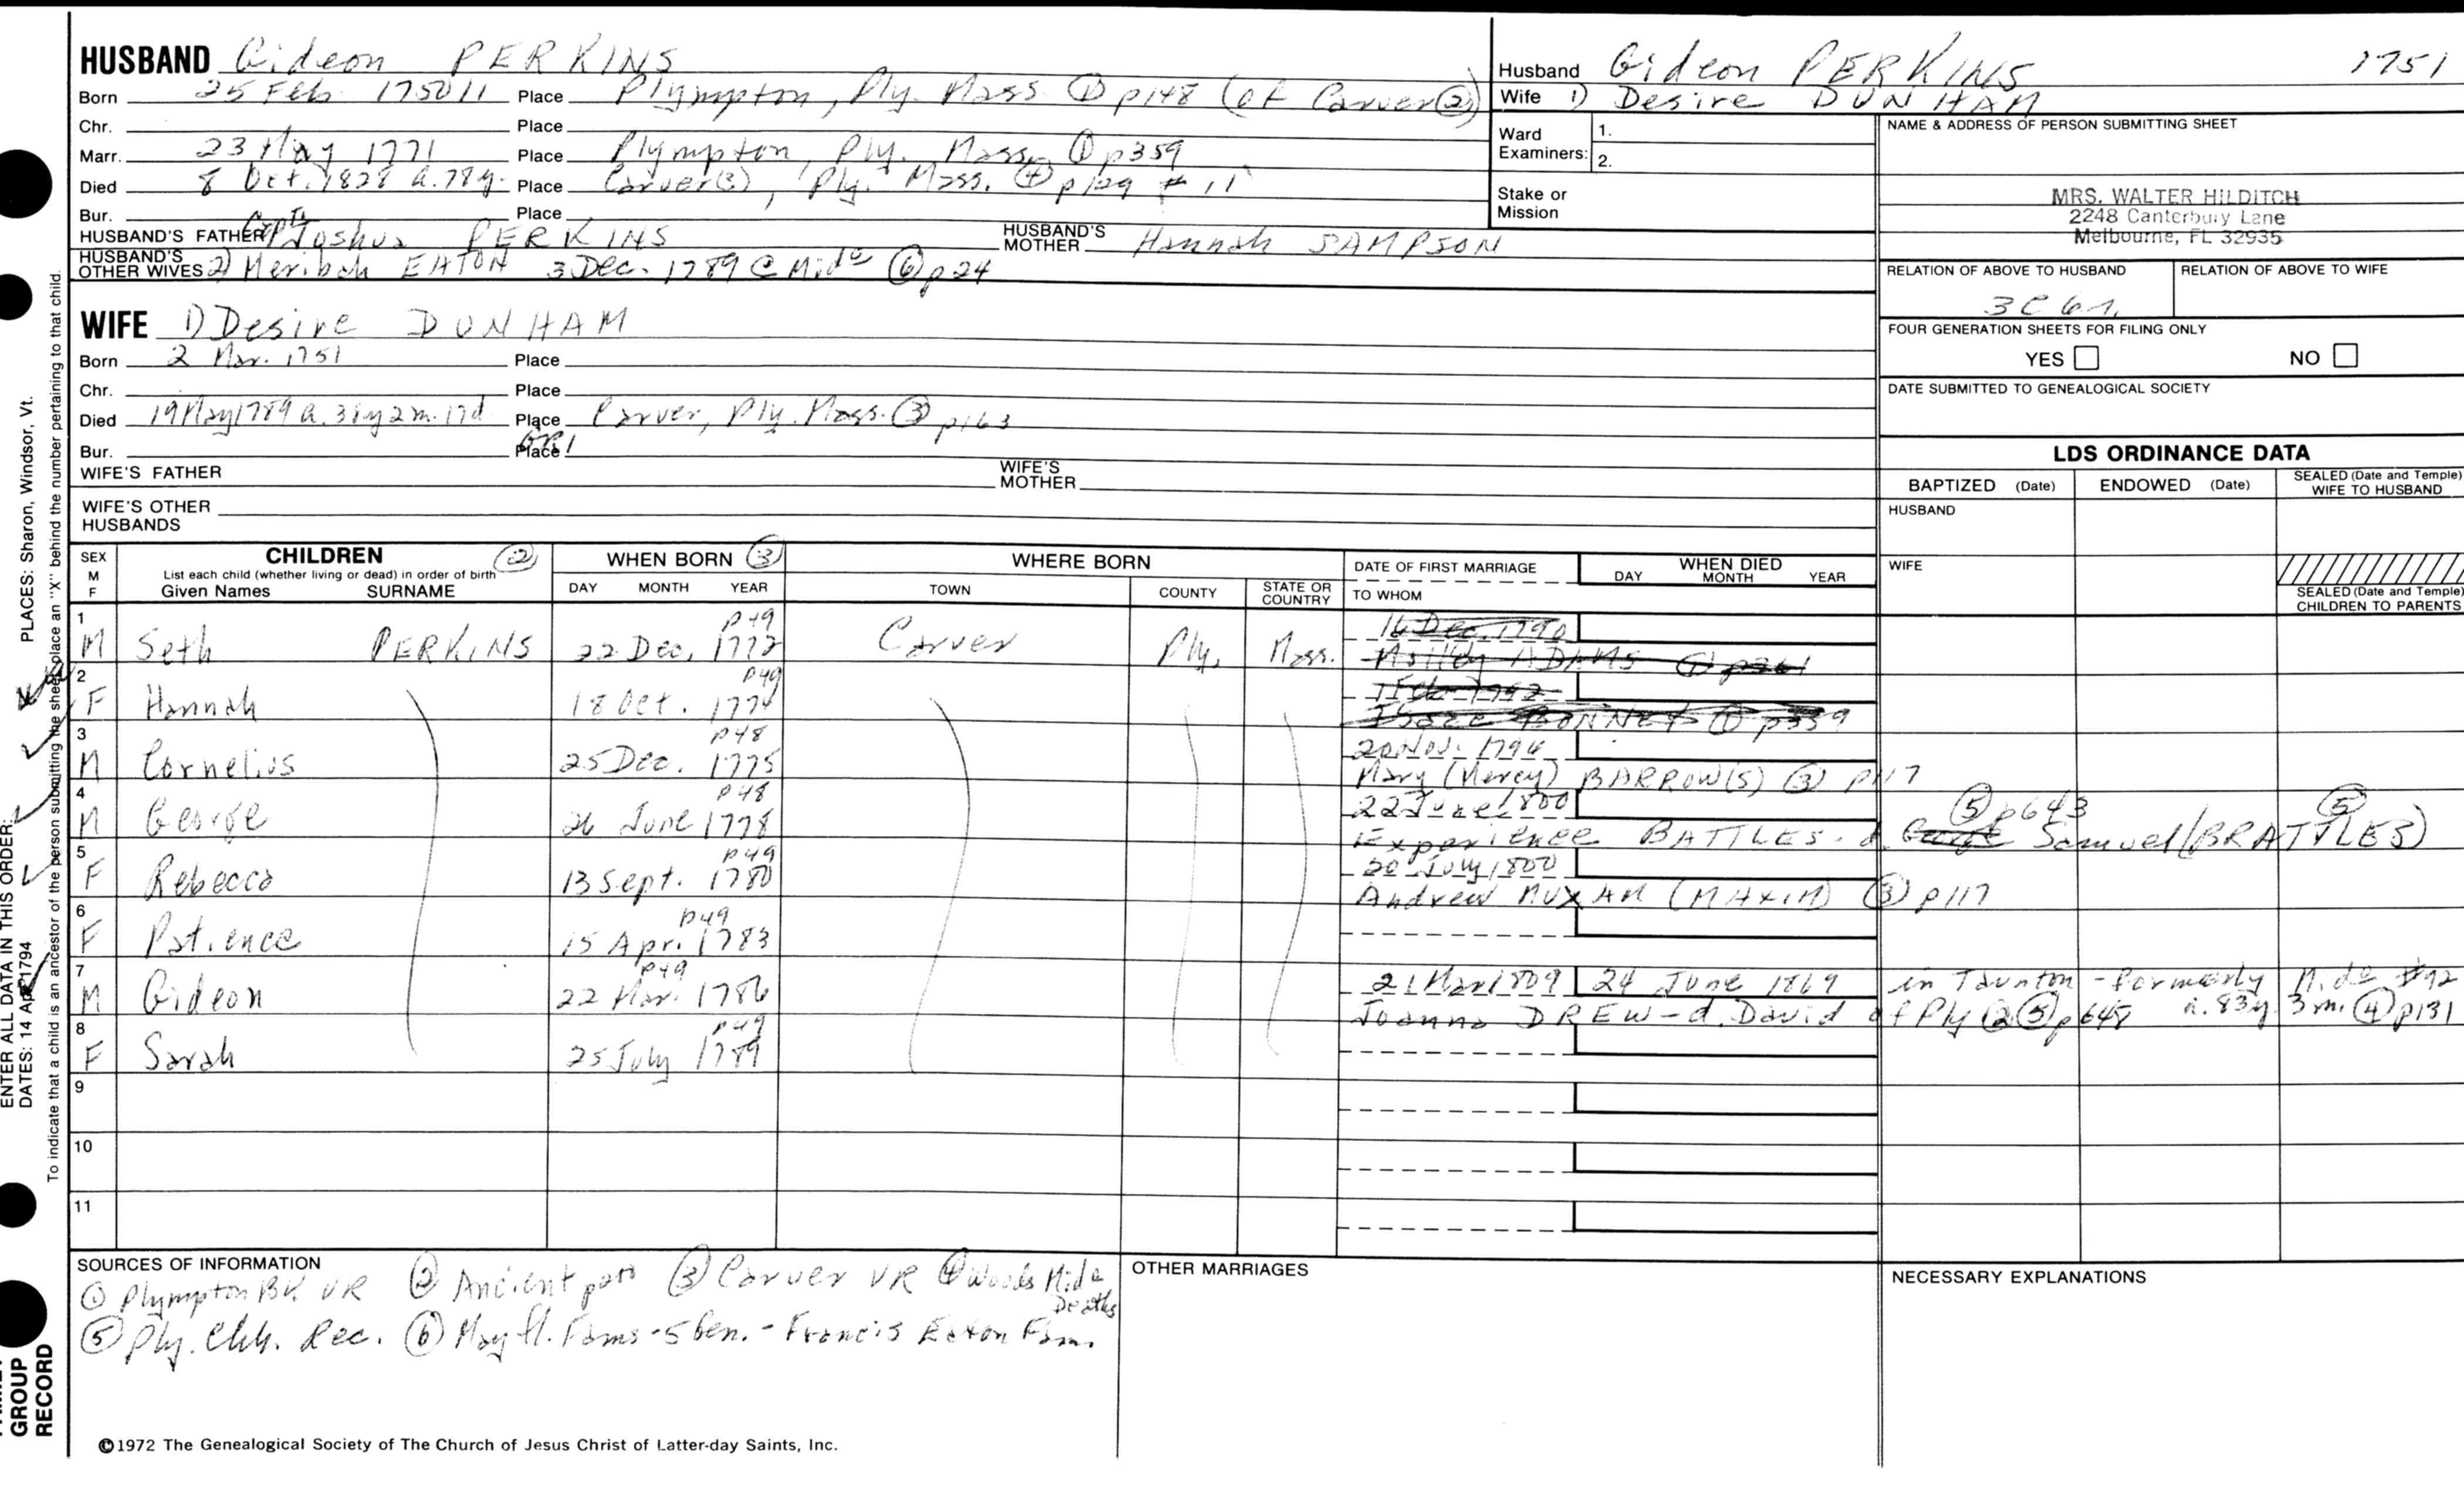 HUSBAND Gideon PERKINS
Born 25 Feb. 1750/1 Place Plympton, Ply. Mass ① p148 (of Carver ②)
Chr. Place
Marr. 23 May 1771 Place Plympton, Ply. Mass. ① p359
Died 8 Oct. 1828 a. 78y. Place Carver(3), Ply. Mass. ④ p129 #11
Bur. Place
HUSBAND'S FATHER Capt. Joshua PERKINS HUSBAND'S MOTHER Hannah SAMPSON
HUSBAND'S OTHER WIVES 2) Meribah EATON 3 Dec. 1789 @ Mid. ⑥ p24
WIFE 1) Desire DUNHAM
Born 2 Mar. 1751 Place
Chr. Place
Died 19 May 1789 a. 38y 2m. 17d Place Carver, Ply. Mass. ③ p163
Bur. Place GR1
WIFE'S FATHER WIFE'S MOTHER
WIFE'S OTHER HUSBANDS
Husband Gideon PERKINS 1751
Wife 1) Desire DUNHAM
Ward Examiners: 1.
2.
Stake or Mission
NAME & ADDRESS OF PERSON SUBMITTING SHEET
MRS. WALTER HILDITCH
2248 Canterbury Lane
Melbourne, FL 32935
RELATION OF ABOVE TO HUSBAND RELATION OF ABOVE TO WIFE
3C 6r.
FOUR GENERATION SHEETS FOR FILING ONLY
YES NO
DATE SUBMITTED TO GENEALOGICAL SOCIETY
LDS ORDINANCE DATA
BAPTIZED (Date) ENDOWED (Date) SEALED (Date and Temple) WIFE TO HUSBAND
HUSBAND
WIFE
SEALED (Date and Temple) CHILDREN TO PARENTS
SEX M F CHILDREN ② WHEN BORN ③ WHERE BORN DATE OF FIRST MARRIAGE WHEN DIED
List each child (whether living or dead) in order of birth
Given Names SURNAME DAY MONTH YEAR TOWN COUNTY STATE OR COUNTRY TO WHOM DAY MONTH YEAR
1 p49 16 Dec. 1790
M Seth PERKINS 22 Dec. 1772 Carver Ply. Mass. ADAMS ① p261
2 p49 1 Feb 1792
F Hannah 18 Oct. 1774 Isaac BONNEY ① p339
3 p48 20 Nov. 1796
M Cornelius 25 Dec. 1775 Mary (Mercy) BARROW(S) ③ p117
4 p48 22 June 1800 ⑤ p643 ⑤
M George 26 June 1778 Experience BATTLES - d. Samuel (BRATTLES)
5 p49 20 July 1800
F Rebecca 13 Sept. 1780 Andrew MUXAM (MAXIM) ③ p117
6 p49
F Patience 15 Apr. 1783
7 p49 21 Mar 1809 24 June 1869 in Taunton - formerly Mid. #92
M Gideon 22 Mar. 1786 Joanna DREW - d. David of Ply ② ⑤ p648 a. 83y. 3m. ④ p131
8 p49
F Sarah 25 July 1789
9
10
11
SOURCES OF INFORMATION
① Plympton Bk VR ② Ancient ③ Carver VR ④ Woods Mid. Deaths
⑤ Ply. Chh. Rec. ⑥ Mayfl. Fams - 5 Gen. - Francis Eaton Fam.
OTHER MARRIAGES
NECESSARY EXPLANATIONS
©1972 The Genealogical Society of The Church of Jesus Christ of Latter-day Saints, Inc.
ENTER ALL DATA IN THIS ORDER:
PLACES: Sharon, Windsor, Vt.
DATES: 14 Apr 1794
To indicate that a child is an ancestor of the person submitting the sheet, place an "X" behind the number pertaining to that child.
GROUP
RECORD